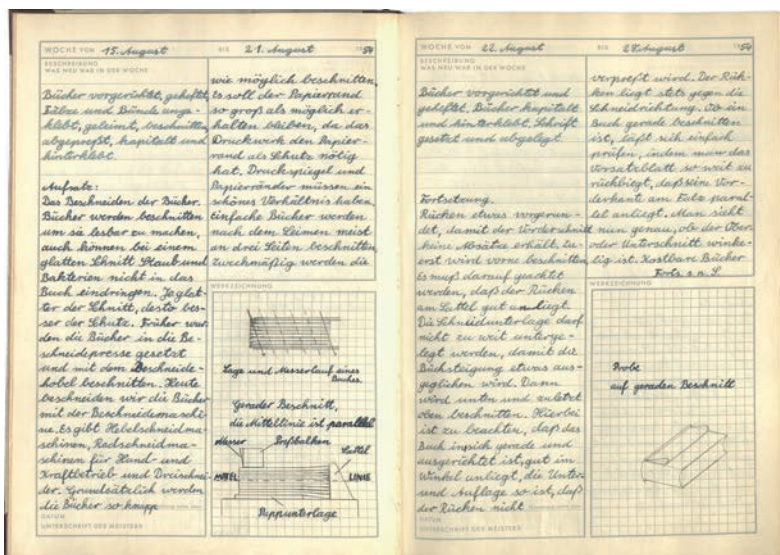 WOCHE VOM 15. August BIS 21. August 1954
BESCHREIBUNG
WAS NEU WAR IN DER WOCHE
Bücher vorgerichtet, geheftet,
Fälze und Bünde ange-
klebt, geleimt, beschnitten
abgepreßt, kapitalt und
hinterklebt.
Aufsatz:
Das Beschneiden der Bücher.
Bücher werden beschnitten
um sie lesbar zu machen,
auch können bei einem
glatten Schnitt Staub und
Bakterien nicht in das
Buch eindringen. Je glat-
ter der Schnitt, desto bes-
ser der Schutz. Früher wur
den die Bücher in die Be-
schneidepresse gesetzt
und mit dem Beschneide-
hobel beschnitten. Heute
beschneiden wir die Bücher
mit der Beschneidemaschi
ne. Es gibt Hebelschneidma-
schinen, Radschneidma-
schinen für Hand- und
Kraftbetrieb und Dreischnei-
der. Grundsätzlich werden
die Bücher so knapp
DATUM
UNTERSCHRIFT DES MEISTERS
wie möglich beschnitten,
Es soll der Papierrand
so groß als möglich er-
halten bleiben, da das
Druckwerk den Papier-
rand als Schutz nötig
hat. Druckspiegel und
Papierränder müssen ein
schönes Verhältnis haben.
Einfache Bücher werden
nach dem Leimen meist
an drei Seiten beschnitten
Zweckmäßig werden die
WERKZEICHNUNG
Lage und Messerlauf eines
Buches.
Gerader Beschnitt,
die Mittellinie ist parallel
Messer Preßbalken
Sattel
MITTEL LINIE
Pappunterlage
WOCHE VOM 22. August BIS 27. August 1954
BESCHREIBUNG
WAS NEU WAR IN DER WOCHE
Bücher vorgerichtet und
geheftet. Bücher kapitalt
und hinterklebt. Schrift
gesetzt und abgelegt.
Fortsetzung.
Rücken etwas vorgerun-
det, damit der Vorderschnitt
keine Absätze erhält. Zu-
erst wird vorne beschnitten
Es muß darauf geachtet
werden, daß der Rücken
am Sattel gut anliegt.
Die Schneidunterlage darf
nicht zu weit unterge-
legt werden, damit die
Buchsteigung etwas aus-
geglichen wird. Dann
wird unten und zuletzt
oben beschnitten. Hierbei
ist zu beachten, daß das
Buch in sich gerade und
ausgerichtet ist, gut im
Winkel anliegt, die Unter-
und Auflage so ist, daß
der Rücken nicht
DATUM
UNTERSCHRIFT DES MEISTERS
verpreßt wird. Der Rük-
ken liegt stets gegen die
Schneidrichtung. Ob ein
Buch gerade beschnitten
ist, läßt sich einfach
prüfen, indem man das
Vorsatzblatt so weit zu
rückbiegt, daß seine Vor-
derkante am Falz paral-
lel anliegt. Man sieht
nun genau, ob der Ober-
oder Unterschnitt winke-
lig ist. Kostbare Bücher
Forts. s. n. S.
WERKZEICHNUNG
Probe
auf geraden Beschnitt